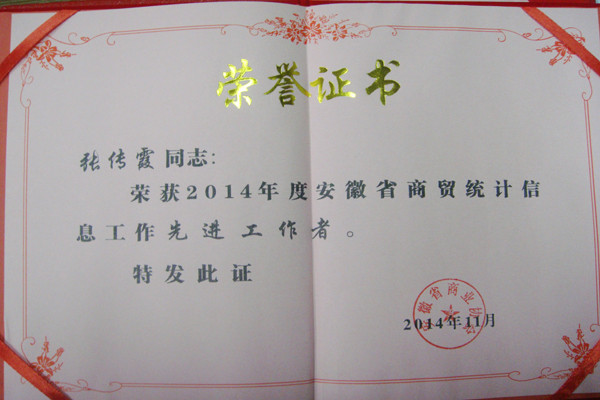 荣誉证书
张传霞同志:
荣获2014年度安徽省商贸统计信
息工作先进工作者。
特发此证
安徽省商业协会
2014年11月